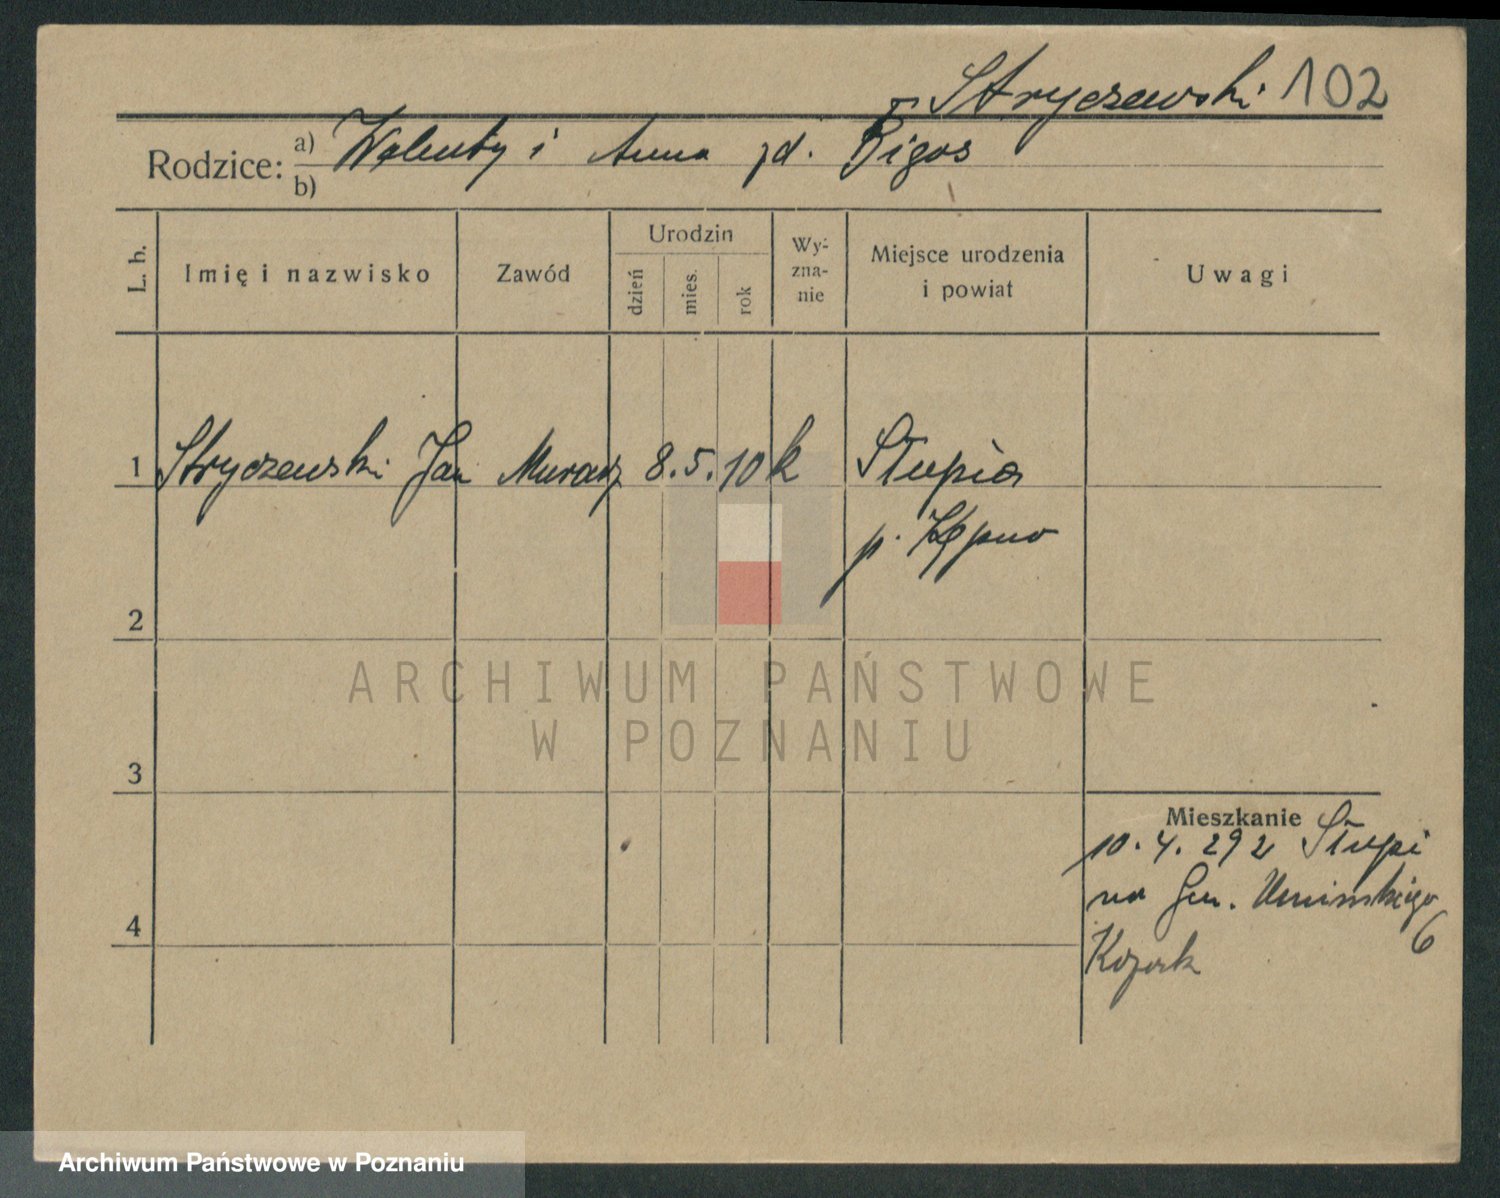 Stryczewski 102
Rodzice: a) Walenty i Anna zd. Bigos
b)
L. b. Imię i nazwisko Zawód Urodzin dzień mies. rok Wyzna-nie Miejsce urodzenia i powiat Uwagi
1 Stryczewski Jan Murarz 8. 5. 10 k Słupia
p. Kępno
2
ARCHIWUM PAŃSTWOWE
W POZNANIU
3
Mieszkanie
10. 4. 29 z Słupi
na Gen. Umińskiego
6
4
Archiwum Państwowe w Poznaniu